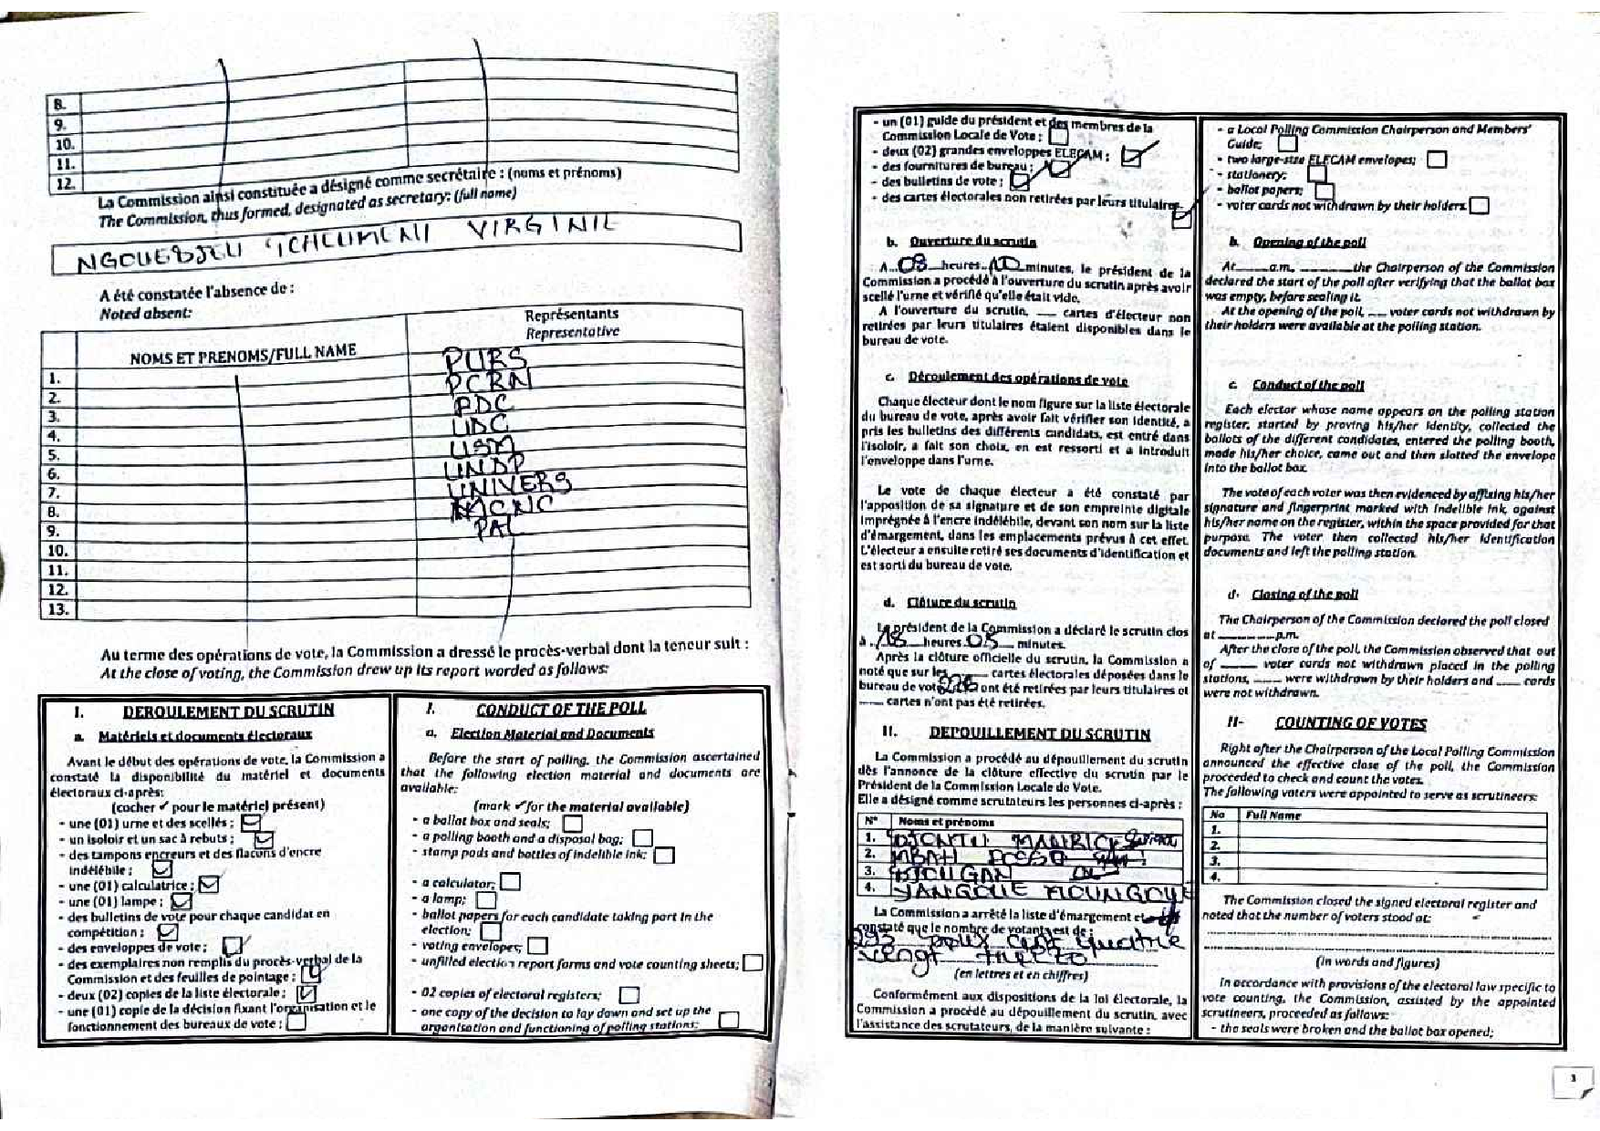 8.
9.
10.
11.
12.
La Commission ainsi constituée a désigné comme secrétaire : (noms et prénoms)
The Commission, thus formed, designated as secretary: (full name)
VIRGINIE
A été constatée l'absence de :
Noted absent:
NOMS ET PRENOMS/FULL NAME
Représentants
Representative
1. PURS
2. PCRN
3. PDC
4. UDC
5. USM
6. UNDP
7. UNIVERS
8. MCNC
9. PAL
10.
11.
12.
13.
Au terme des opérations de vote, la Commission a dressé le procès-verbal dont la teneur suit :
At the close of voting, the Commission drew up its report worded as follows:
I. DEROULEMENT DU SCRUTIN
a. Matériels et documents électoraux
Avant le début des opérations de vote, la Commission a
constaté la disponibilité du matériel et documents
électoraux ci-après:
(cocher ✓ pour le matériel présent)
- une (01) urne et des scellés ;
- un isoloir et un sac à rebuts ;
- des tampons encreurs et des flacons d'encre
indélébile ;
- une (01) calculatrice ;
- une (01) lampe ;
- des bulletins de vote pour chaque candidat en
compétition ;
- des enveloppes de vote ;
- des exemplaires non remplis du procès-verbal de la
Commission et des feuilles de pointage ;
- deux (02) copies de la liste électorale ;
- une (01) copie de la décision fixant l'organisation et le
fonctionnement des bureaux de vote ;
I. CONDUCT OF THE POLL
a. Election Material and Documents
Before the start of polling, the Commission ascertained
that the following election material and documents are
available:
(mark ✓ for the material available)
- a ballot box and seals;
- a polling booth and a disposal bag;
- stamp pads and bottles of indelible ink;
- a calculator;
- a lamp;
- ballot papers for each candidate taking part in the
election;
- voting envelopes;
- unfilled election report forms and vote counting sheets;
- 02 copies of electoral registers;
- one copy of the decision to lay down and set up the
organisation and functioning of polling stations;
- un (01) guide du président et des membres de la
Commission Locale de Vote ;
- deux (02) grandes enveloppes ELECAM ;
- des fournitures de bureau ;
- des bulletins de vote ;
- des cartes électorales non retirées par leurs titulaires
b. Ouverture du scrutin
A 08 heures 10 minutes, le président de la
Commission a procédé à l'ouverture du scrutin après avoir
scellé l'urne et vérifié qu'elle était vide.
A l'ouverture du scrutin, ____ cartes d'électeur non
retirées par leurs titulaires étaient disponibles dans le
bureau de vote.
c. Déroulement des opérations de vote
Chaque électeur dont le nom figure sur la liste électorale
du bureau de vote, après avoir fait vérifier son identité, a
pris les bulletins des différents candidats, est entré dans
l'isoloir, a fait son choix, en est ressorti et a introduit
l'enveloppe dans l'urne.
Le vote de chaque électeur a été constaté par
l'apposition de sa signature et de son empreinte digitale
imprégnée à l'encre indélébile, devant son nom sur la liste
d'émargement, dans les emplacements prévus à cet effet.
L'électeur a ensuite retiré ses documents d'identification et
est sorti du bureau de vote.
d. Clôture du scrutin
Le président de la Commission a déclaré le scrutin clos
à 18 heures 05 minutes.
Après la clôture officielle du scrutin, la Commission a
noté que sur les ____ cartes électorales déposées dans le
bureau de vote ont été retirées par leurs titulaires et
____ cartes n'ont pas été retirées.
II. DEPOUILLEMENT DU SCRUTIN
La Commission a procédé au dépouillement du scrutin
dès l'annonce de la clôture effective du scrutin par le
Président de la Commission Locale de Vote.
Elle a désigné comme scrutateurs les personnes ci-après :
N° Noms et prénoms
1.
2. MBAH
3.
4.
La Commission a arrêté la liste d'émargement et
constaté que le nombre de votants est de :
293 Deux cent quatre
vingt treize
(en lettres et en chiffres)
Conformément aux dispositions de la loi électorale, la
Commission a procédé au dépouillement du scrutin, avec
l'assistance des scrutateurs, de la manière suivante :
- a Local Polling Commission Chairperson and Members'
Guide;
- two large-size ELECAM envelopes;
- stationery;
- ballot papers;
- voter cards not withdrawn by their holders.
b. Opening of the poll
At ____ a.m, ____ the Chairperson of the Commission
declared the start of the poll after verifying that the ballot box
was empty, before sealing it.
At the opening of the poll, ____ voter cards not withdrawn by
their holders were available at the polling station.
c. Conduct of the poll
Each elector whose name appears on the polling station
register, started by proving his/her identity, collected the
ballots of the different candidates, entered the polling booth,
made his/her choice, came out and then slotted the envelope
into the ballot box.
The vote of each voter was then evidenced by affixing his/her
signature and fingerprint marked with indelible ink, against
his/her name on the register, within the space provided for that
purpose. The voter then collected his/her identification
documents and left the polling station.
d- Closing of the poll
The Chairperson of the Commission declared the poll closed
at ____ p.m.
After the close of the poll, the Commission observed that out
of ____ voter cards not withdrawn placed in the polling
stations, ____ were withdrawn by their holders and ____ cards
were not withdrawn.
II- COUNTING OF VOTES
Right after the Chairperson of the Local Polling Commission
announced the effective close of the poll, the Commission
proceeded to check and count the votes.
The following voters were appointed to serve as scrutineers:
No Full Name
1.
2.
3.
4.
The Commission closed the signed electoral register and
noted that the number of voters stood at:
(in words and figures)
In accordance with provisions of the electoral law specific to
vote counting, the Commission, assisted by the appointed
scrutineers, proceeded as follows:
- the seals were broken and the ballot box opened;
3